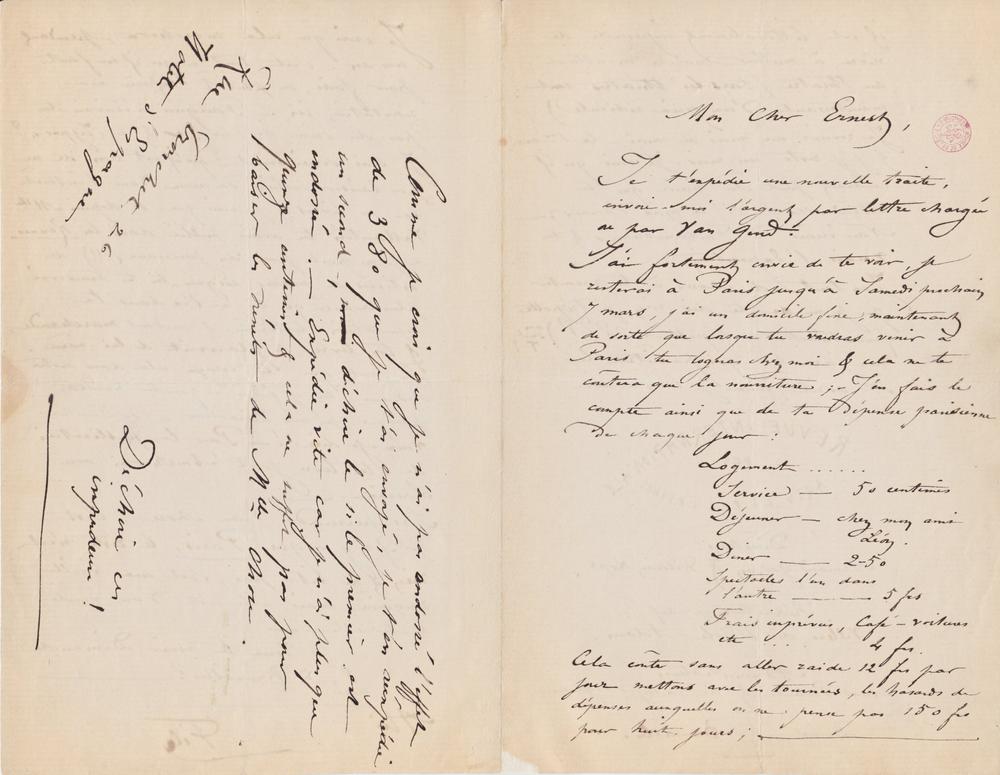 Mon cher Ernest,
Je t'expédie une nouvelle traite,
envoie-moi l'argent par lettre chargée
ou par Van Gend.
J'ai fortement envie de te voir, je
resterai à Paris jusqu'à Samedi prochain
7 mars, j'ai un domicile fixe, maintenant
de sorte que lorsque tu voudras venir à
Paris tu logeras chez moi & cela ne te
coûtera que la nourriture; - J'en fais le
compte ainsi que de ta dépense parisienne
de chaque jour :
Logement ......
Service — 50 centimes
Déjeuner — chez mon ami
Léon.
Diner — 2-50
Spectacles l'un dans
l'autre — 5 frs
Frais imprévus, Café - voitures
etc ... 4 frs.
Cela coûte sans aller raide 12 frs par
jour mettons avec les tournées, les hasards de
dépenses auxquelles on ne pense pas 150 frs
pour huit jours;
Comme je crois que je n'ai pas endossé l'effet
de 380 que je t'ai envoyé, je t'en réexpédie
un second, déchire le si le premier est
endossé. — Expédie vite car je n'ai plus que
quinze centimes & cela ne suffit pas pour
payer les dîners de Mlle Chou.
Rue Tronchet 26
Hôtel d'
Déchire ces
impudeurs !